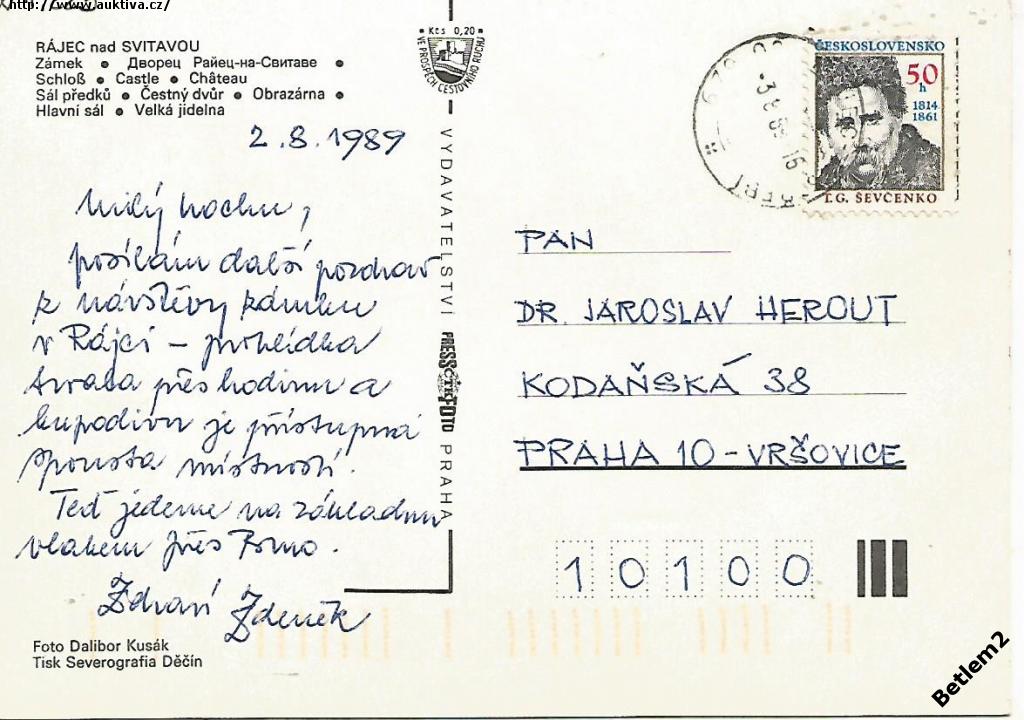 http://www.auktiva.cz/
RÁJEC nad SVITAVOU
Zámek • Дворец Райец-на-Свитаве •
Schloß • Castle • Château
Sál předků • Čestný dvůr • Obrazárna •
Hlavní sál • Velká jídelna
2.8.1989
Milý hochu,
posílám další pozdrav
z návštěvy zámku
v Rájci – prohlídka
trvala přes hodinu a
kupodivu je přístupná
spousta místností.
Teď jedeme na základnu
vlakem přes Brno.
Zdraví Zdeněk
Foto Dalibor Kusák
Tisk Severografia Děčín
Kčs 0,20
VE PROSPĚCH CESTOVNÍHO RUCHU
VYDAVATELSTVÍ PRESSFOTO PRAHA
ČTK
ČESKOSLOVENSKO
50
h
1814
1861
T.G. ŠEVČENKO
PAN
DR. JAROSLAV HEROUT
KODAŇSKÁ 38
PRAHA 10 – VRŠOVICE
10100
Betlem2